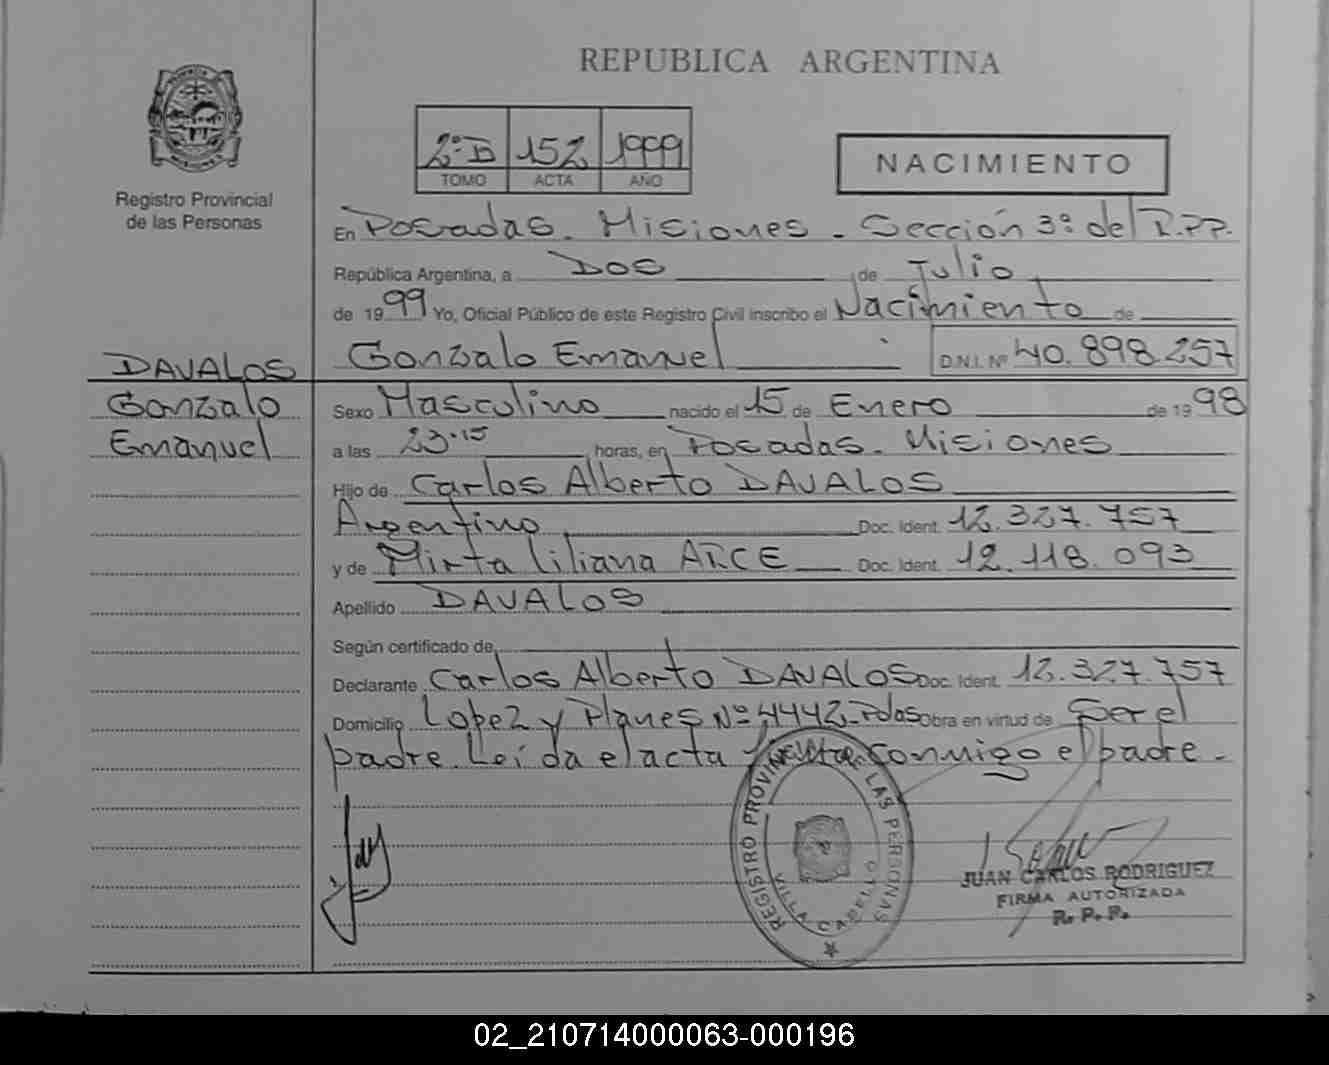 REPUBLICA ARGENTINA
Registro Provincial
de las Personas
2º D 152 1999
TOMO ACTA AÑO
NACIMIENTO
En Posadas. Misiones - Sección 3ª del R.P.P.
República Argentina, a Dos de Julio
de 1999 Yo, Oficial Público de este Registro Civil inscribo el Nacimiento de
Gonzalo Emanuel D.N.I. Nº 40.898.257
DAVALOS
Gonzalo
Emanuel
Sexo Masculino nacido el 15 de Enero de 1998
a las 23.15 horas, en Posadas. Misiones
Hijo de Carlos Alberto DAVALOS
Argentino Doc. Ident. 12.327.757
y de Mirta Liliana ARCE Doc. Ident. 12.118.093
Apellido DAVALOS
Según certificado de
Declarante Carlos Alberto DAVALOS Doc. Ident. 12.327.757
Domicilio Lopez y Planes Nº 4442-Pdas Obra en virtud de Ser el
padre. Leída el acta conmigo el padre.
REGISTRO PROVINCIAL DE LAS PERSONAS
VILLA CABELLO
JUAN CARLOS RODRIGUEZ
FIRMA AUTORIZADA
R. P. P.
02_210714000063-000196